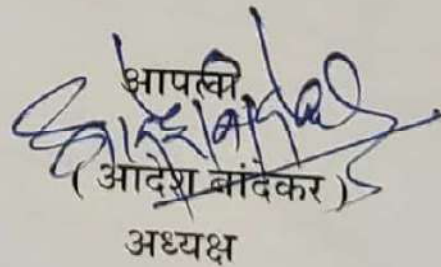 आपला
( आदेश बांदेकर )
अध्यक्ष